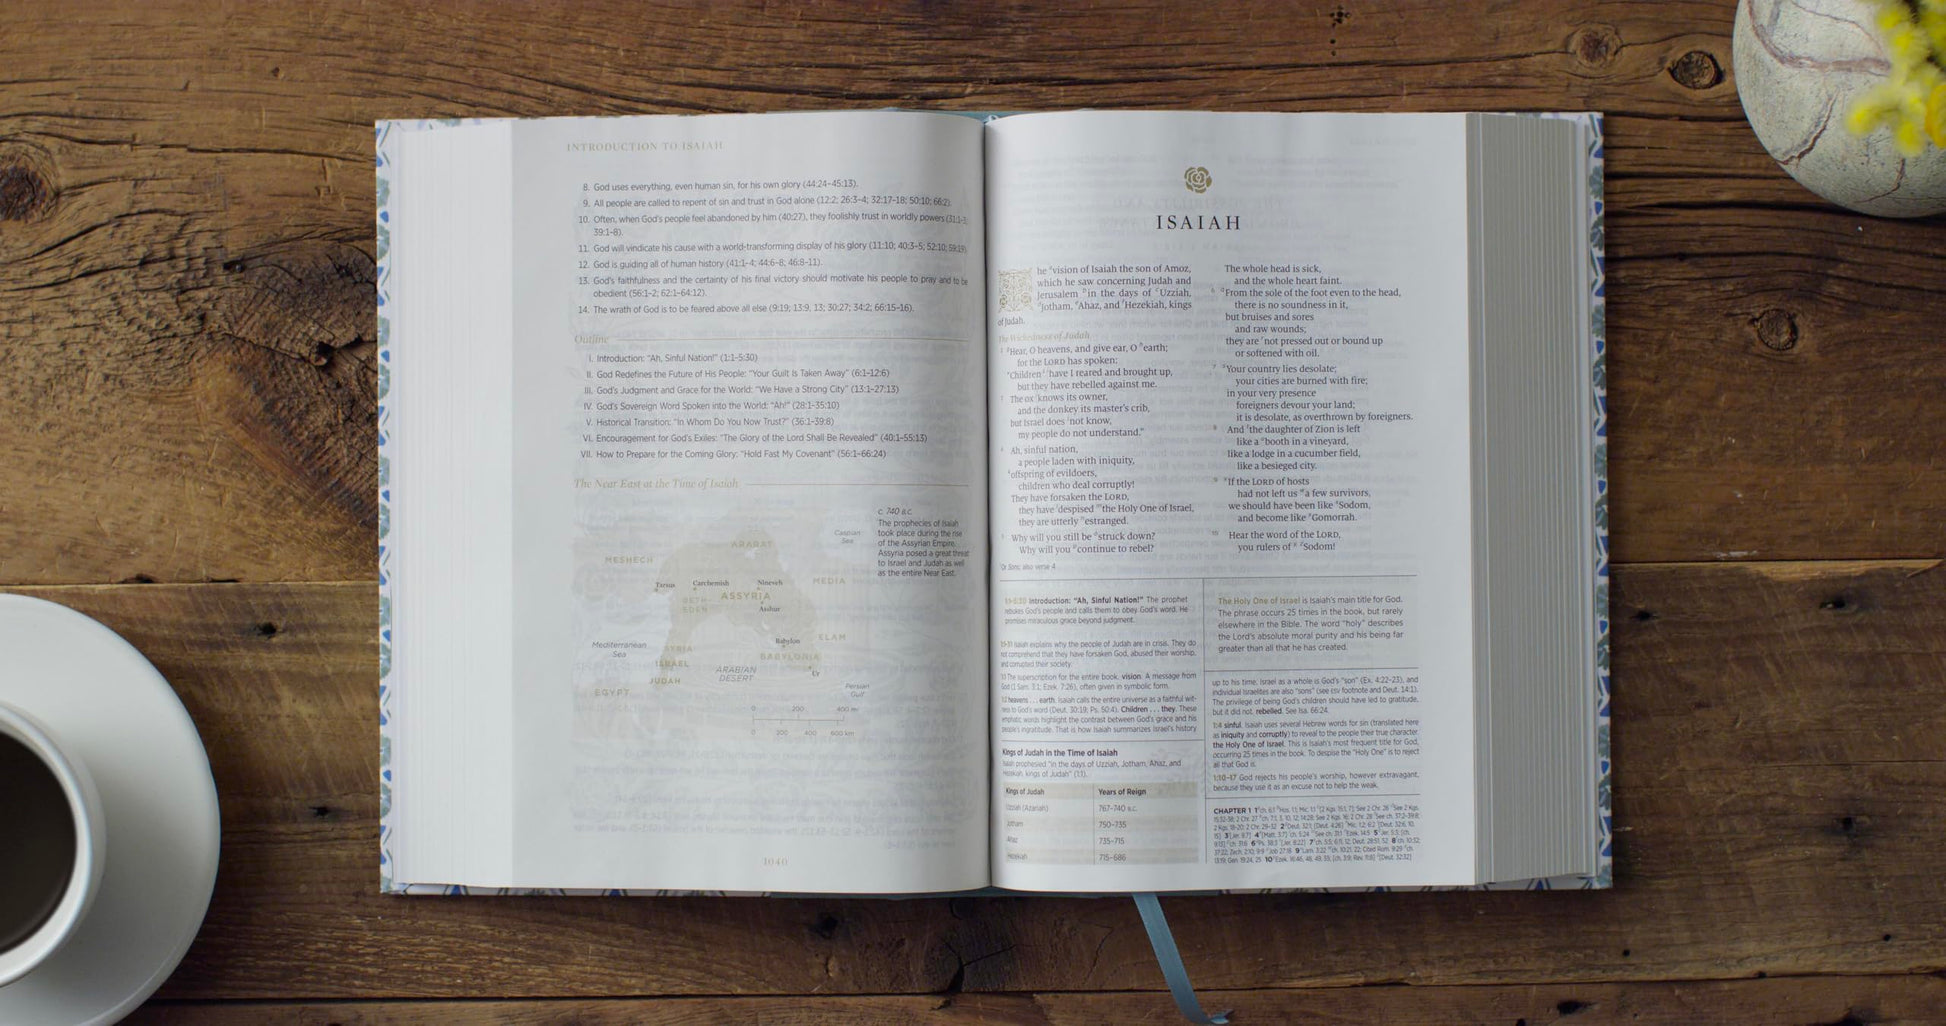 INTRODUCTION TO ISAIAH
8. God uses everything, even human sin, for his own glory (44:24–45:13).
9. All people are called to repent of sin and trust in God alone (12:2; 26:3–4; 32:17–18; 50:10; 66:2).
10. Often, when God's people feel abandoned by him (40:27), they foolishly trust in worldly powers (31:1–3;
39:1–8).
11. God will vindicate his cause with a world-transforming display of his glory (11:10; 40:3–5; 52:10; 59:19).
12. God is guiding all of human history (41:1–4; 44:6–8; 46:8–11).
13. God's faithfulness and the certainty of his final victory should motivate his people to pray and to be
obedient (56:1–2; 62:1–64:12).
14. The wrath of God is to be feared above all else (9:19; 13:9, 13; 30:27; 34:2; 66:15–16).
Outline
I. Introduction: “Ah, Sinful Nation!” (1:1–5:30)
II. God Redefines the Future of His People: “Your Guilt Is Taken Away” (6:1–12:6)
III. God's Judgment and Grace for the World: “We Have a Strong City” (13:1–27:13)
IV. God's Sovereign Word Spoken into the World: “Ah!” (28:1–35:10)
V. Historical Transition: “In Whom Do You Now Trust?” (36:1–39:8)
VI. Encouragement for God's Exiles: “The Glory of the Lord Shall Be Revealed” (40:1–55:13)
VII. How to Prepare for the Coming Glory: “Hold Fast My Covenant” (56:1–66:24)
The Near East at the Time of Isaiah
c. 740 B.C.
The prophecies of Isaiah
took place during the rise
of the Assyrian Empire.
Assyria posed a great threat
to Israel and Judah as well
as the entire Near East.
Caspian
Sea
ARARAT
MESHECH
Tarsus
Carchemish
Nineveh
MEDIA
BETH-
EDEN
ASSYRIA
Asshur
Mediterranean
Sea
SYRIA
Babylon
ELAM
BABYLONIA
ISRAEL
ARABIAN
DESERT
Ur
JUDAH
EGYPT
Persian
Gulf
0 200 400 mi
0 200 400 600 km
1040
ISAIAH
he vision of Isaiah the son of Amoz,
which he saw concerning Judah and
Jerusalem in the days of Uzziah,
Jotham, Ahaz, and Hezekiah, kings
of Judah.
The Wickedness of Judah
2 Hear, O heavens, and give ear, O earth;
for the LORD has spoken:
“Children have I reared and brought up,
but they have rebelled against me.
3 The ox knows its owner,
and the donkey its master's crib,
but Israel does not know,
my people do not understand.”
4 Ah, sinful nation,
a people laden with iniquity,
offspring of evildoers,
children who deal corruptly!
They have forsaken the LORD,
they have despised the Holy One of Israel,
they are utterly estranged.
5 Why will you still be struck down?
Why will you continue to rebel?
Or Sons; also verse 4
The whole head is sick,
and the whole heart faint.
6 From the sole of the foot even to the head,
there is no soundness in it,
but bruises and sores
and raw wounds;
they are not pressed out or bound up
or softened with oil.
7 Your country lies desolate;
your cities are burned with fire;
in your very presence
foreigners devour your land;
it is desolate, as overthrown by foreigners.
8 And the daughter of Zion is left
like a booth in a vineyard,
like a lodge in a cucumber field,
like a besieged city.
9 If the LORD of hosts
had not left us a few survivors,
we should have been like Sodom,
and become like Gomorrah.
10 Hear the word of the LORD,
you rulers of Sodom!
1:1–5:30 Introduction: “Ah, Sinful Nation!” The prophet
rebukes God's people and calls them to obey God's word. He
promises miraculous grace beyond judgment.
Isaiah explains why the people of Judah are in crisis. They do
not comprehend that they have forsaken God, abused their worship,
and corrupted their society.
The superscription for the entire book. vision. A message from
God (1 Sam. 3:1; Ezek. 7:26), often given in symbolic form.
heavens . . . earth. Isaiah calls the entire universe as a faithful wit-
ness to God's word (Deut. 30:19; Ps. 50:4). Children . . . they. These
emphatic words highlight the contrast between God's grace and his
people's ingratitude. That is how Isaiah summarizes Israel's history
Kings of Judah in the Time of Isaiah
Isaiah prophesied “in the days of Uzziah, Jotham, Ahaz, and
Hezekiah, kings of Judah” (1:1).
Kings of Judah Years of Reign
Uzziah (Azariah) 767–740 B.C.
Jotham 750–735
Ahaz 735–715
Hezekiah 715–686
The Holy One of Israel is Isaiah's main title for God.
The phrase occurs 25 times in the book, but rarely
elsewhere in the Bible. The word “holy” describes
the Lord's absolute moral purity and his being far
greater than all that he has created.
up to his time. Israel as a whole is God's “son” (Ex. 4:22–23), and
individual Israelites are also “sons” (see ESV footnote and Deut. 14:1).
The privilege of being God's children should have led to gratitude,
but it did not. rebelled. See Isa. 66:24.
1:4 sinful. Isaiah uses several Hebrew words for sin (translated here
as iniquity and corruptly) to reveal to the people their true character.
the Holy One of Israel. This is Isaiah's most frequent title for God,
occurring 25 times in the book. To despise the “Holy One” is to reject
all that God is.
1:10–17 God rejects his people's worship, however extravagant,
because they use it as an excuse not to help the weak.
CHAPTER 1